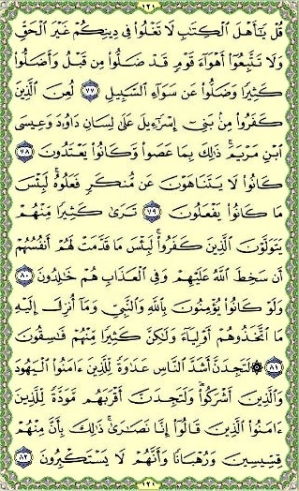 ١٢١
قُلْ يَٰٓأَهْلَ ٱلْكِتَٰبِ لَا تَغْلُوا۟ فِى دِينِكُمْ غَيْرَ ٱلْحَقِّ
وَلَا تَتَّبِعُوٓا۟ أَهْوَآءَ قَوْمٍ قَدْ ضَلُّوا۟ مِن قَبْلُ وَأَضَلُّوا۟
كَثِيرًا وَضَلُّوا۟ عَن سَوَآءِ ٱلسَّبِيلِ ٧٧ لُعِنَ ٱلَّذِينَ
كَفَرُوا۟ مِنۢ بَنِىٓ إِسْرَٰٓءِيلَ عَلَىٰ لِسَانِ دَاوُۥدَ وَعِيسَى
ٱبْنِ مَرْيَمَ ۚ ذَٰلِكَ بِمَا عَصَوا۟ وَّكَانُوا۟ يَعْتَدُونَ ٧٨
كَانُوا۟ لَا يَتَنَاهَوْنَ عَن مُّنكَرٍ فَعَلُوهُ ۚ لَبِئْسَ
مَا كَانُوا۟ يَفْعَلُونَ ٧٩ تَرَىٰ كَثِيرًا مِّنْهُمْ
يَتَوَلَّوْنَ ٱلَّذِينَ كَفَرُوا۟ ۚ لَبِئْسَ مَا قَدَّمَتْ لَهُمْ أَنفُسُهُمْ
أَن سَخِطَ ٱللَّهُ عَلَيْهِمْ وَفِى ٱلْعَذَابِ هُمْ خَٰلِدُونَ ٨٠
وَلَوْ كَانُوا۟ يُؤْمِنُونَ بِٱللَّهِ وَٱلنَّبِىِّ وَمَآ أُنزِلَ إِلَيْهِ
مَا ٱتَّخَذُوهُمْ أَوْلِيَآءَ وَلَٰكِنَّ كَثِيرًا مِّنْهُمْ فَٰسِقُونَ
٨١ ۞ لَتَجِدَنَّ أَشَدَّ ٱلنَّاسِ عَدَٰوَةً لِّلَّذِينَ ءَامَنُوا۟ ٱلْيَهُودَ
وَٱلَّذِينَ أَشْرَكُوا۟ ۖ وَلَتَجِدَنَّ أَقْرَبَهُم مَّوَدَّةً لِّلَّذِينَ
ءَامَنُوا۟ ٱلَّذِينَ قَالُوٓا۟ إِنَّا نَصَٰرَىٰ ۚ ذَٰلِكَ بِأَنَّ مِنْهُمْ
قِسِّيسِينَ وَرُهْبَانًا وَأَنَّهُمْ لَا يَسْتَكْبِرُونَ ٨٢
١٢١